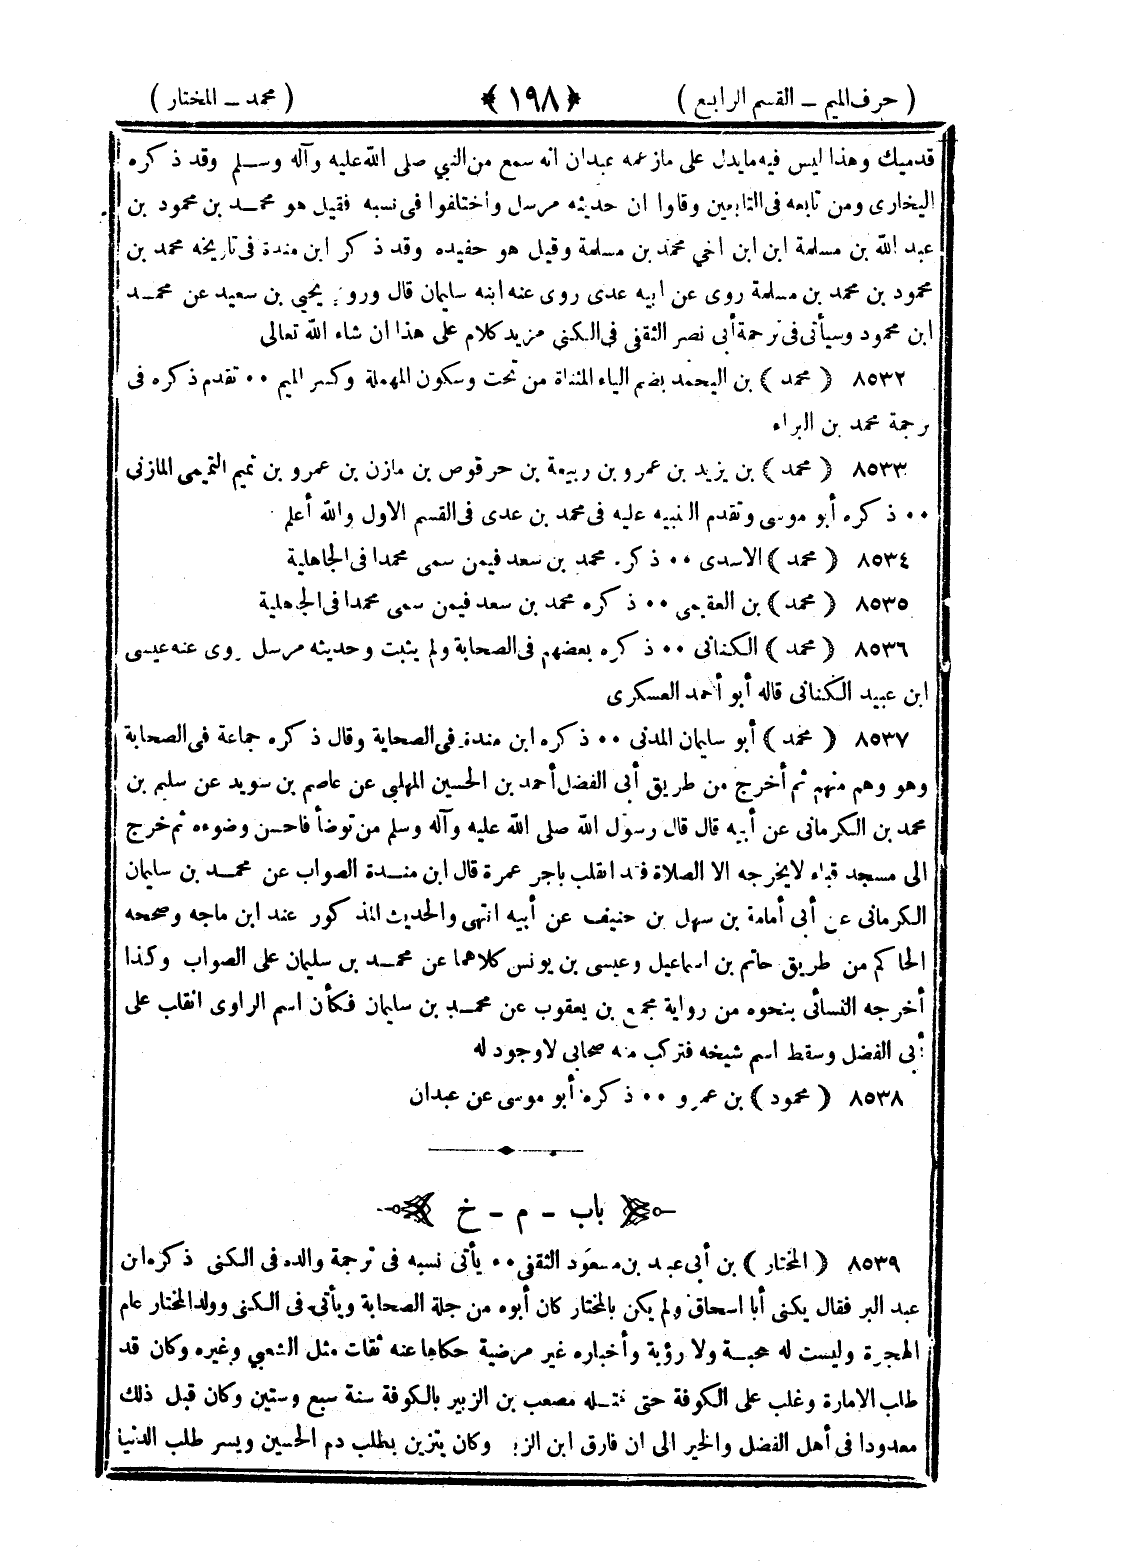 ( حرف الميم ــ القسم الرابع ) ﴿١٩٨﴾ ( محمد ــ المختار )
قدميك وهذا ليس فيه مايدل على مازعمه عبدان انه سمع من النبي صلى الله عليه وآله وسلم وقد ذكره
البخارى ومن تابعه فى التابعين وقالوا ان حديثه مرسل وأختلفوا فى نسبه فقيل هو محمد بن محمود بن
عبد الله بن مسلمة ابن ابن اخي محمد بن مسلمة وقيل هو حفيده وقد ذكر ابن مندة فى تاريخه محمد بن
محمود بن محمد بن مسلمة روى عن ابيه عدى روى عنه ابنه سليمان قال وروى يحيى بن سعيد عن محمد
ابن محمود وسيأتى فى ترجمة أبى نصر الثقفى فى الكنى مزيد كلام على هذا ان شاء الله تعالى
٨٥٣٢ ( محمد ) بن اليحمد بضم الياء المثناة من تحت وسكون المهملة وكسر الميم ٠٠ تقدم ذكره فى
ترجمة محمد بن البراء
٨٥٣٣ ( محمد ) بن يزيد بن عمرو بن ربيعة بن حرقوص بن مازن بن عمرو بن تميم التميمى المازنى
٠٠ ذكره أبو موسى وتقدم التنبيه عليه فى محمد بن عدى فى القسم الاول والله أعلم
٨٥٣٤ ( محمد ) الاسدى ٠٠ ذكره محمد بن سعد فيمن سمى محمدا فى الجاهلية
٨٥٣٥ ( محمد ) بن العقيمى ٠٠ ذكره محمد بن سعد فيمن سمى محمدا فى الجهلية
٨٥٣٦ ( محمد ) الكنانى ٠٠ ذكره بعضهم فى الصحابة ولم يثبت وحديثه مرسل روى عنه عيسى
ابن عبيد الكنانى قاله أبو أحمد العسكرى
٨٥٣٧ ( محمد ) أبو سليمان المدنى ٠٠ ذكره ابن مندة فى الصحابة وقال ذكره جماعة فى الصحابة
وهو وهم منهم ثم أخرج من طريق أبى الفضل أحمد بن الحسين المهلبى عن عاصم بن سويد عن سليم بن
محمد بن الكرمانى عن أبيه قال قال رسول الله صلى الله عليه وآله وسلم من توضأ فاحسن وضوءه ثم خرج
الى مسجد قباء لايخرجه الا الصلاة فقد انقلب باجر عمرة قال ابن مندة الصواب عن محمد بن سليمان
الكرمانى عن أبى أمامة بن سهل بن حنيف عن أبيه انتهى والحديث المذكور عند ابن ماجه وصححه
الحاكم من طريق حاتم بن اسماعيل وعيسى بن يونس كلاهما عن محمد بن سليمان على الصواب وكذا
أخرجه النسائى بنحوه من رواية مجمع بن يعقوب عن محمد بن سليمان فكأن اسم الراوى انقلب على
أبى الفضل وسقط اسم شيخه فتركب منه صحابى لاوجود له
٨٥٣٨ ( محمود ) بن عمرو ٠٠ ذكره أبو موسى عن عبدان
باب - م - خ
٨٥٣٩ ( المختار ) بن أبى عبيد بن مسعود الثقفى ٠٠ يأتى نسبه فى ترجمة والده فى الكنى ذكره ابن
عبد البر فقال يكنى أبا اسحاق ولم يكن بالمختار كان أبوه من جلة الصحابة ويأتى فى الكنى وولد المختار عام
الهجرة وليست له صحبة ولا رؤية وأخباره غير مرضية حكاها عنه ثقات مثل الشعبي وغيره وكان قد
طلب الامارة وغلب على الكوفة حتى قتله مصعب بن الزبير بالكوفة سنة سبع وستين وكان قبل ذلك
معدودا فى أهل الفضل والخير الى ان فارق ابن الزبير وكان يتزين بطلب دم الحسين ويسر طلب الدنيا